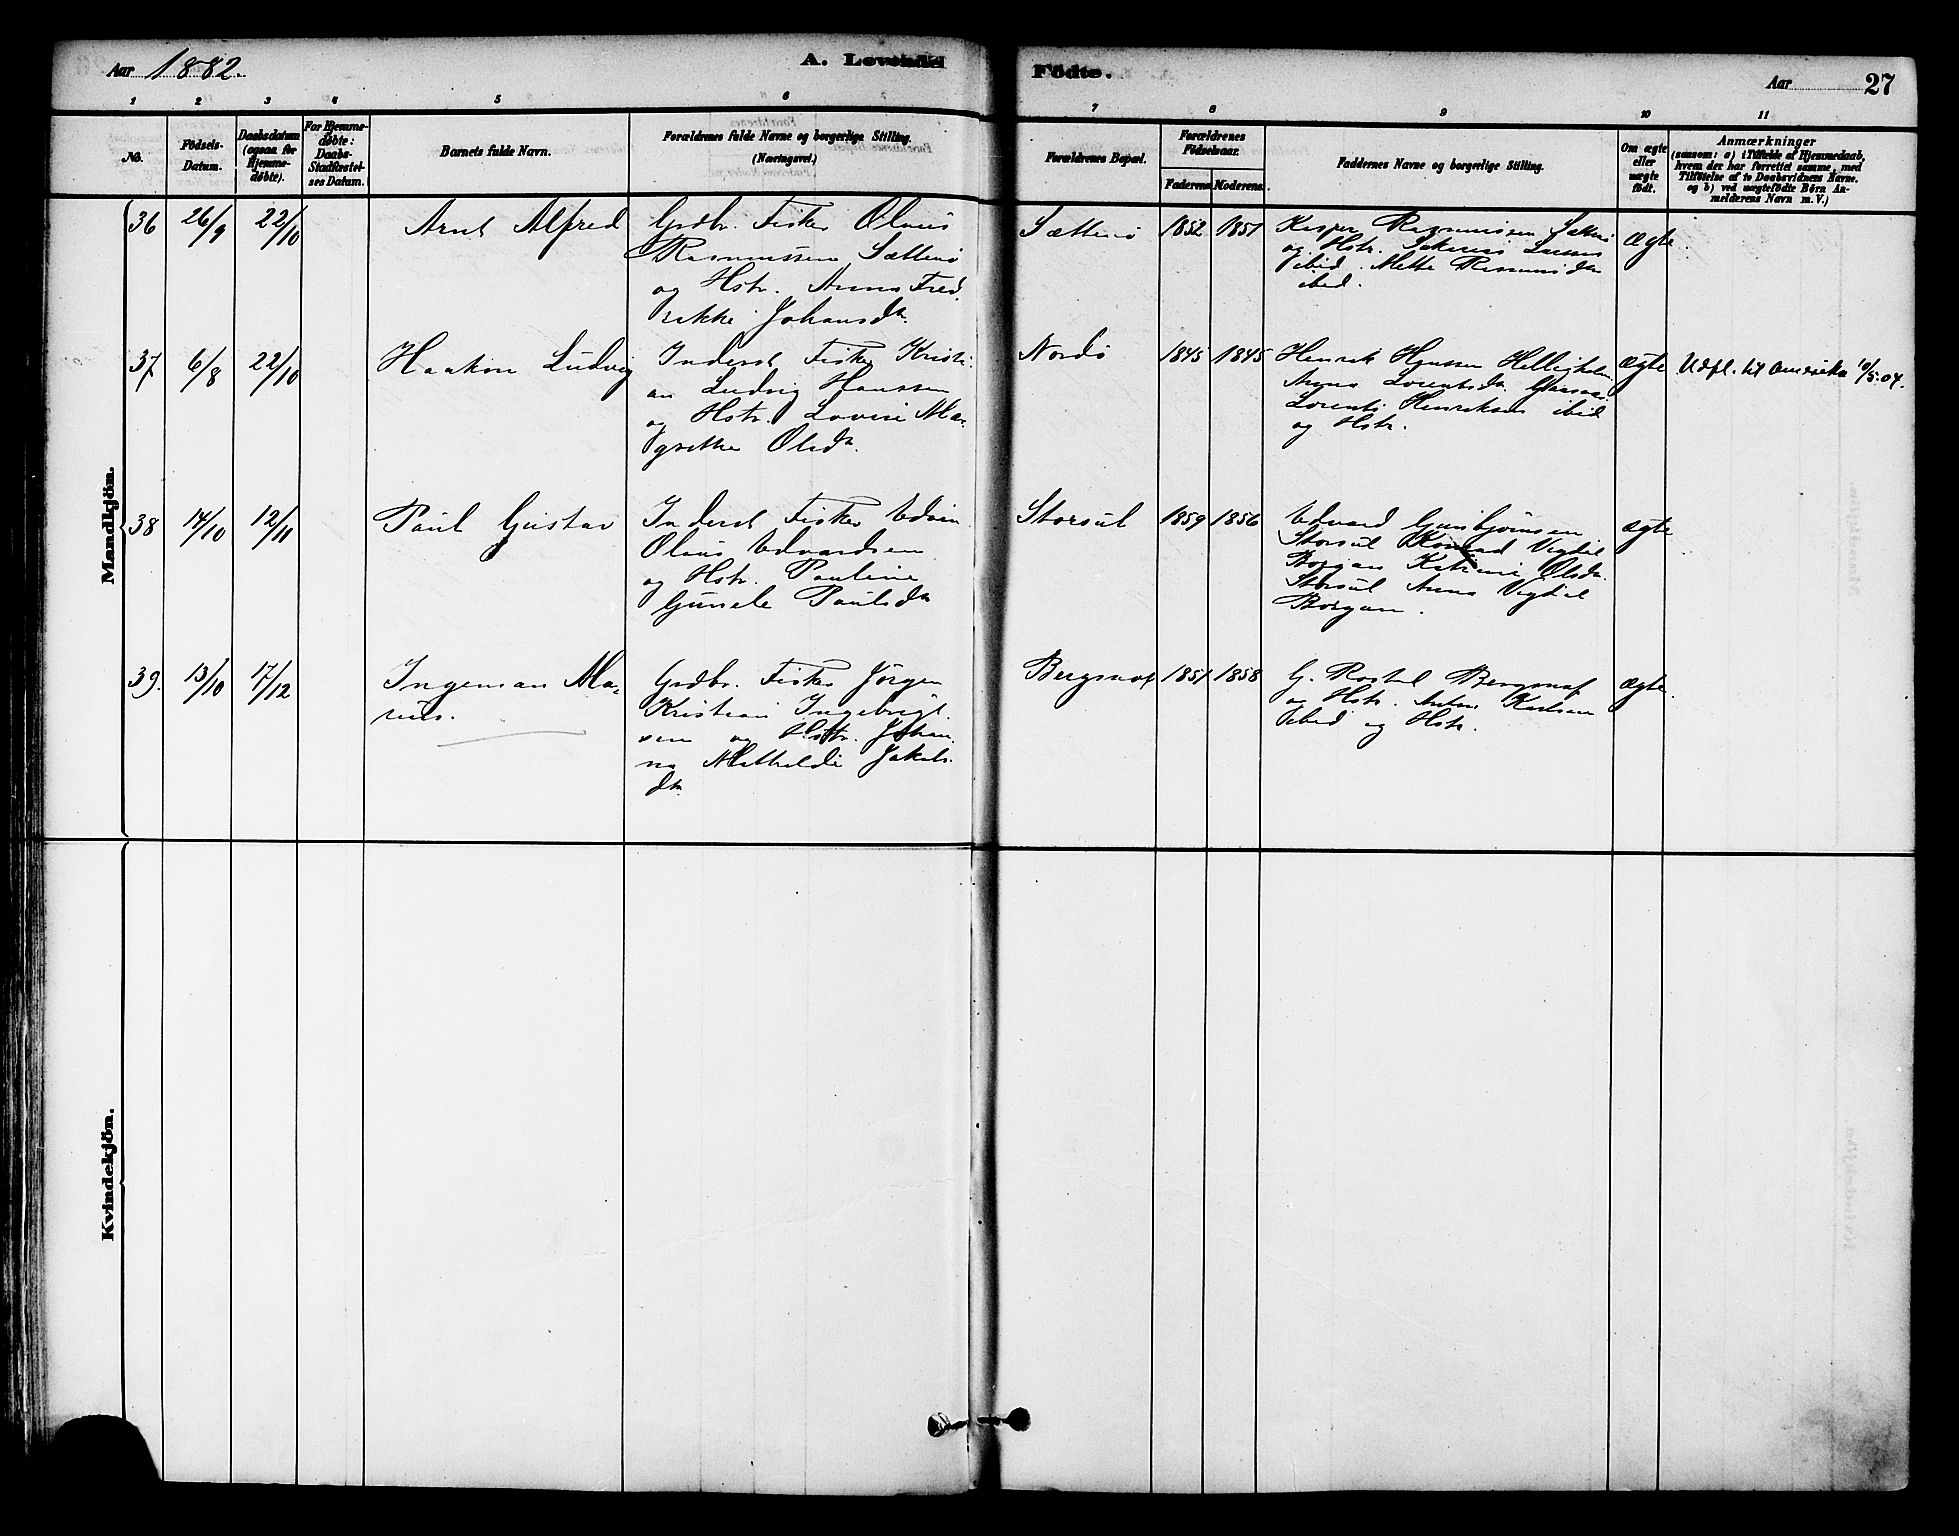 Aar 1882.
A. Levende
Födte.
Aar
27
1 2 3 4 5 6 7 8 9 10 11
No.
Födsels-
Datum.
Daabsdatum
(ogsaa for
Hjemme-
döbte).
For Hjemme-
döbte:
Daabs-
Stadfæstel-
ses Datum.
Barnets fulde Navn.
Forældrenes fulde Navne og borgerlige Stilling.
(Næringsvei.)
Forældrenes Bopæl.
Forældrenes
Födselsaar.
Faderens. Moderens.
Faddernes Navne og borgerlige Stilling.
Om ægte
eller
uægte
födt.
Anmærkninger
(saasom: a) i Tilfælde af Hjemmedaab,
hvem der har forrettet samme, med
Tilföielse af to Daabsvidners Navne.
og b) ved uægtefödte Börn An-
melderens Navn m. V.)
Mandkjön.
36 26/9 22/10 Arnt Alfred
Grdbr. Fisker Olaus
Rasmussen Sættenø
og Hstr. Anna Fred.
rikke Johansdtr.
Sættenø 1852 1851
Kasper Rasmussen Sættenø
og Hstr.
ibid. Mette Rasmusdtr
ibid.
Ægte.
37 6/8 22/10 Haakon Ludvig
Inderst Fisker Kristi-
an Ludvig Hanssen
og Hstr. Lovise Ma-
grethe Olsdtr.
Nordø 1845 1845
Henrik
Anna Lorentsdtr.
Lorents Henriksen ibid
og Hstr.
Ægte
Udfl. til Amerika 10/5.04.
38 14/10 12/11 Paul Gustav
Inderst Fisker Edvin
Olaus Edvardsen
og Hstr. Pauline
Gunele Paulsdtr
Storsul 1859 1856
Edvard Gunbjørnsen
Storsul Konrad Vigdel
Borgan Katrine Olsdtr.
Storsul Anna Vigdel
Borgan.
Ægte
39. 13/10 17/12 Ingeman Ma-
rius.
Grdbr. Fisker Jørgen
Kristian Ingebrigt-
sen og Hstr. Johan-
na Mathilde Jakobs-
dtr.
Bergsnov 1851 1858
G. Rostad Bergsnov
og Hstr. Anton Karlsen
ibid og Hstr.
Ægte.
Kvindekjön.